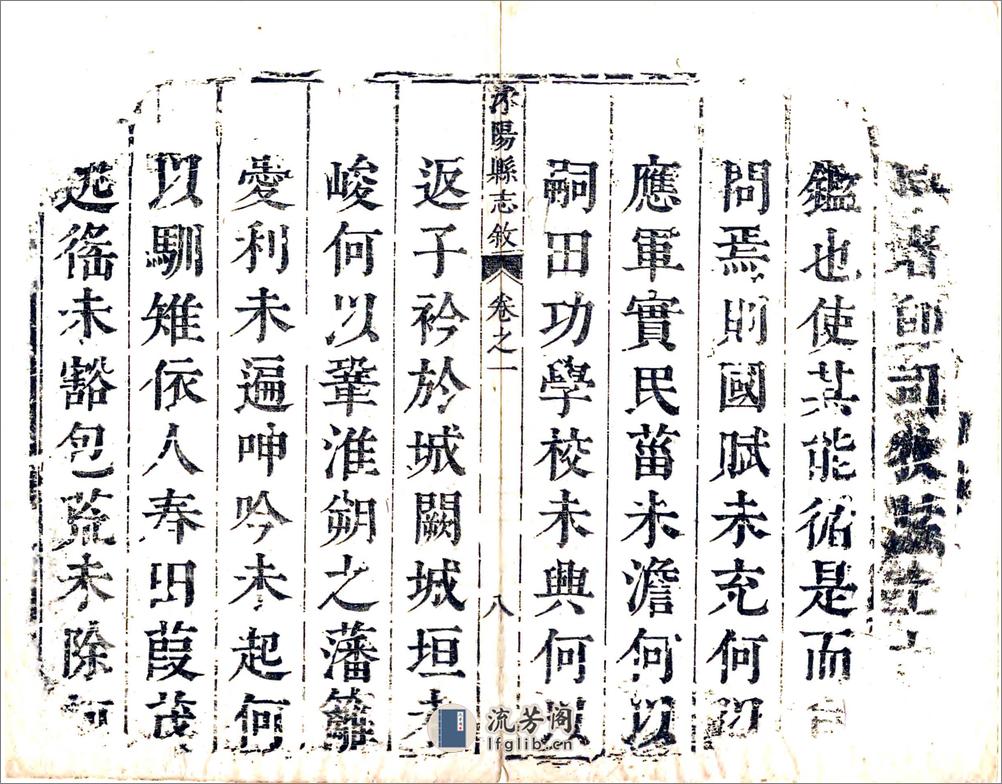 鑑也使其能循是而
問焉則國賦未充何以
應軍實民菑未澹何以
嗣田功學校未興何以
沭陽縣志敘
卷之一
八
返子衿於城闕城垣未
峻何以鞏淮朔之藩籬
愛利未遍呻吟未起何
以馴雉依人奉田葭茂
逃徭未豁包荒未除何
流芳阁
lfglib.cn